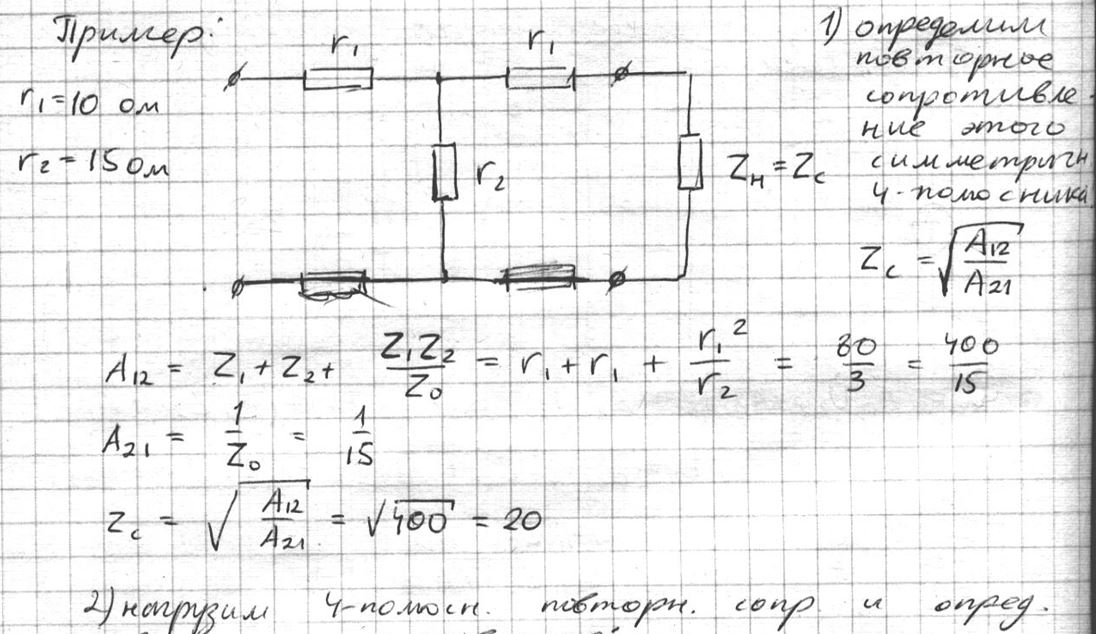 Пример:
r₁ = 10 ом
r₂ = 15 ом
r₁
r₁
r₂
Zн = Zс
1) определим
повторное
сопротивле-
ние этого
симметричн
4-полюсника
Zс = √(A₁₂/A₂₁)
A₁₂ = Z₁ + Z₂ + Z₁Z₂/Z₀ = r₁ + r₁ + r₁²/r₂ = 80/3 = 400/15
A₂₁ = 1/Z₀ = 1/15
Zс = √(A₁₂/A₂₁) = √400 = 20
2) нагрузим 4-полюсн. повторн. сопр и опред.